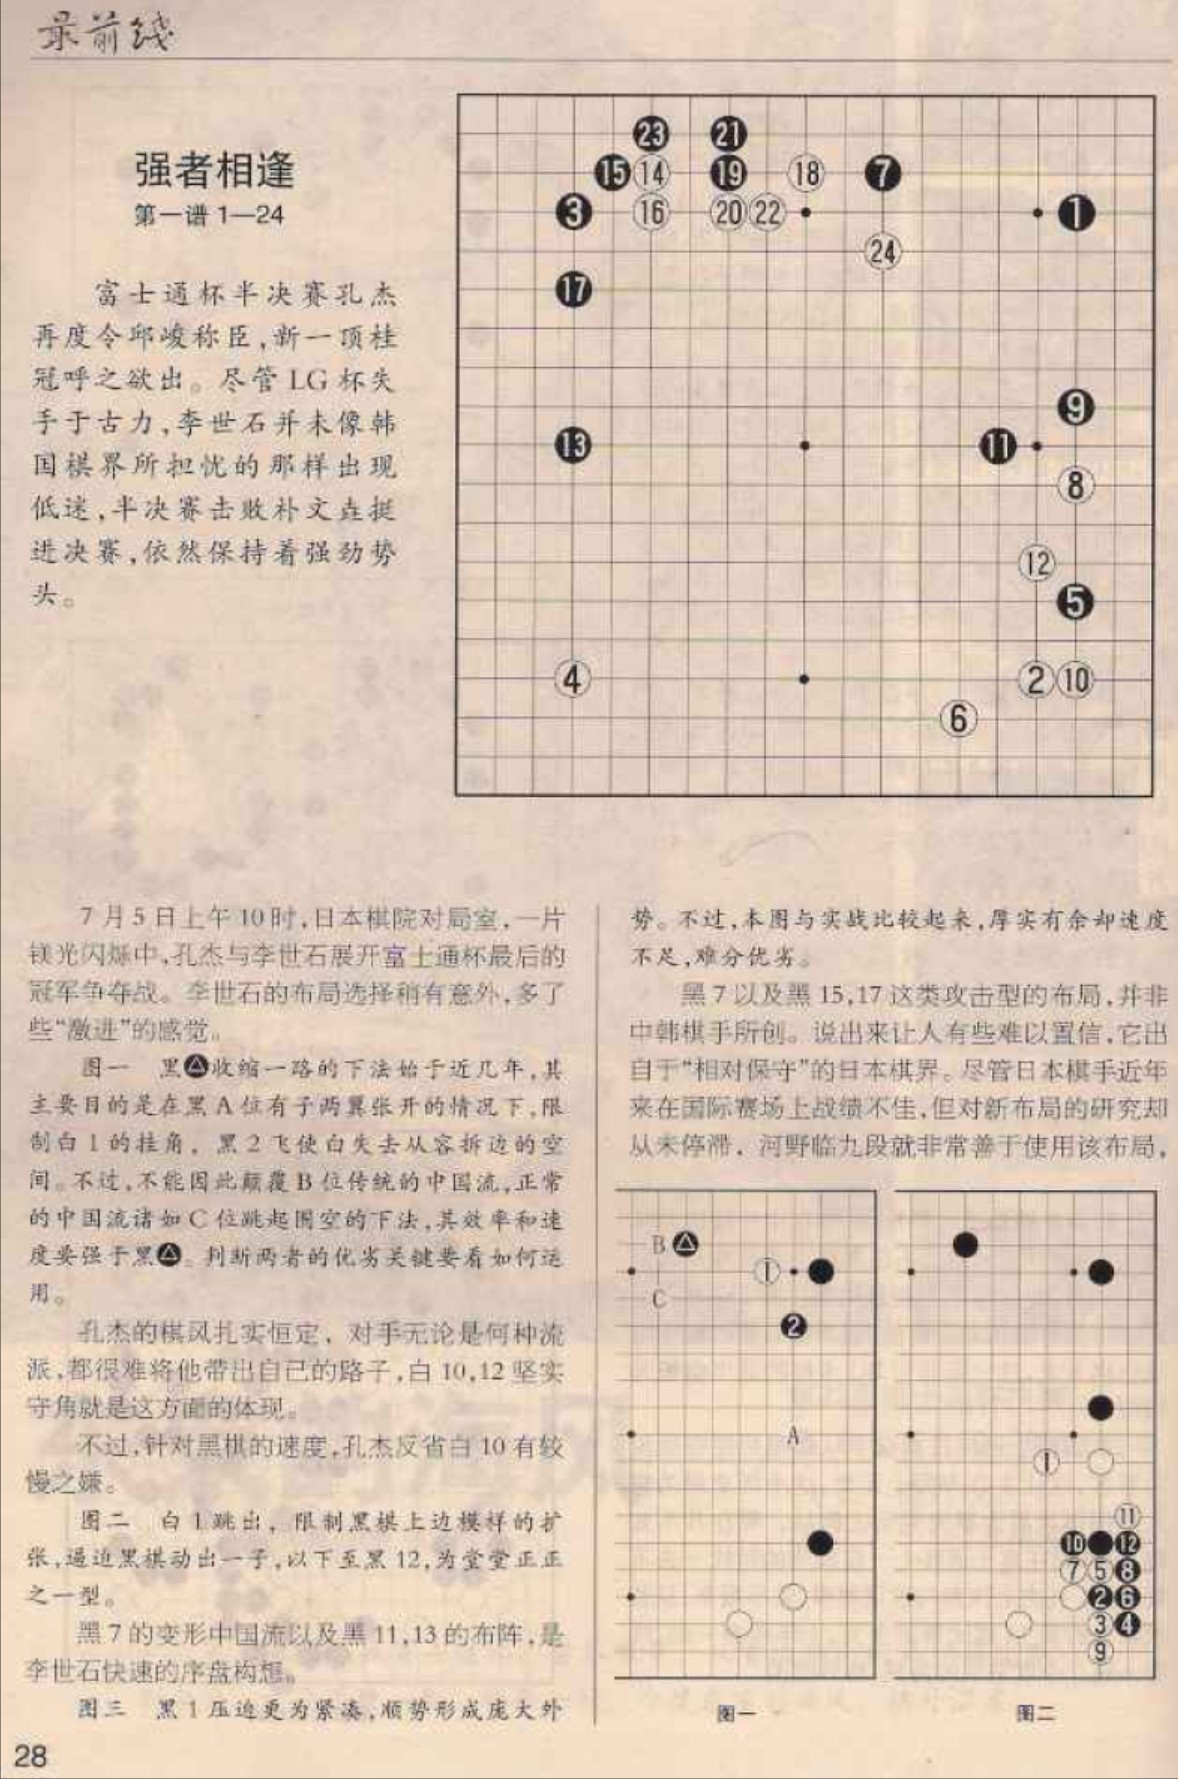 最前线
强者相逢
第一谱 1—24
富士通杯半决赛孔杰
再度令邱峻称臣,新一项桂
冠呼之欲出。尽管 LG 杯失
手于古力,李世石并未像韩
国棋界所担忧的那样出现
低迷,半决赛击败朴文垚挺
进决赛,依然保持着强劲势
头。
23 21
15 14 19 18 7
3 16 20 22 1
24
17
9
13 11
8
12
5
4 2 10
6
7 月 5 日上午 10 时,日本棋院对局室,一片
镁光闪烁中,孔杰与李世石展开富士通杯最后的
冠军争夺战。李世石的布局选择稍有意外,多了
些“激进”的感觉。
图一 黑▲收缩一路的下法始于近几年,其
主要目的是在黑 A 位有子两翼张开的情况下,限
制白 1 的挂角。黑 2 飞使白失去从容拆边的空
间。不过,不能因此颠覆 B 位传统的中国流,正常
的中国流诸如 C 位跳起围空的下法,其效率和速
度要强于黑▲。判断两者的优劣关键要看如何运
用。
孔杰的棋风扎实恒定,对手无论是何种流
派,都很难将他带出自己的路子,白 10,12 坚实
守角就是这方面的体现。
不过,针对黑棋的速度,孔杰反省白 10 有较
慢之嫌。
图二 白 1 跳出,限制黑棋上边模样的扩
张,逼迫黑棋动出一子,以下至黑 12,为堂堂正正
之一型。
黑 7 的变形中国流以及黑 11,13 的布阵,是
李世石快速的序盘构想。
图三 黑 1 压迫更为紧凑,顺势形成庞大外
势。不过,本图与实战比较起来,厚实有余却速度
不足,难分优劣。
黑 7 以及黑 15,17 这类攻击型的布局,并非
中韩棋手所创。说出来让人有些难以置信,它出
自于“相对保守”的日本棋界。尽管日本棋手近年
来在国际赛场上战绩不佳,但对新布局的研究却
从未停滞,河野临九段就非常善于使用该布局,
B
1
C
2
A
图一
1
11
10 12
7 5 8
2 6
3 4
9
图二
28